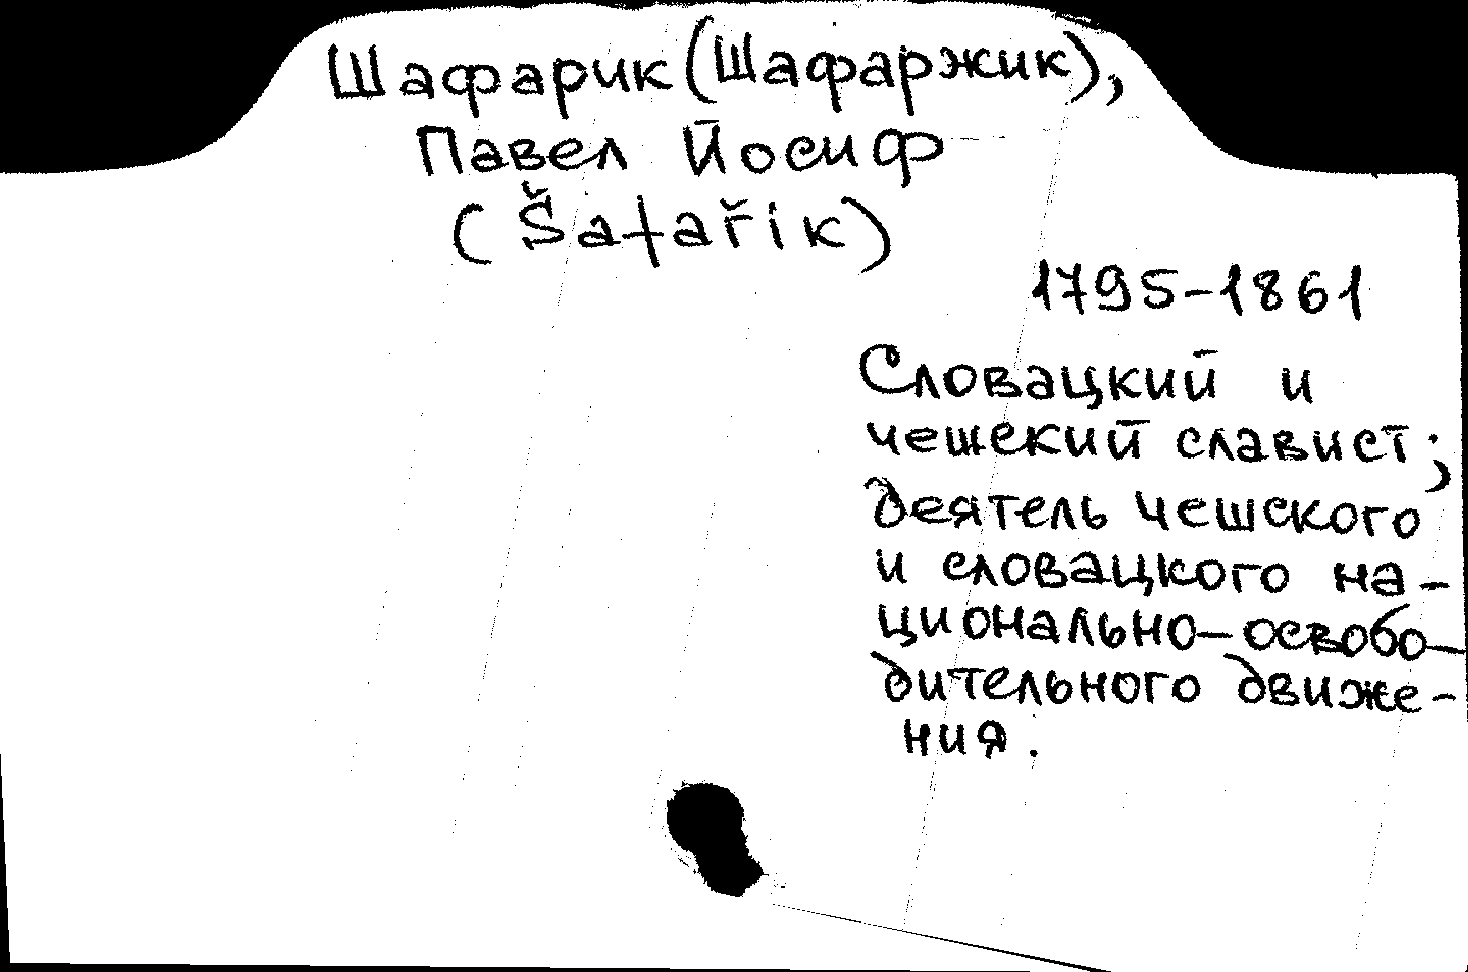 Шафарик (Шафаржик),
Павел Йосиф
(Šafařik)
1795-1861
Словацкий и
чешский славист;
деятель чешского
и словацкого на-
ционально-освобо-
дительного движе-
ния.